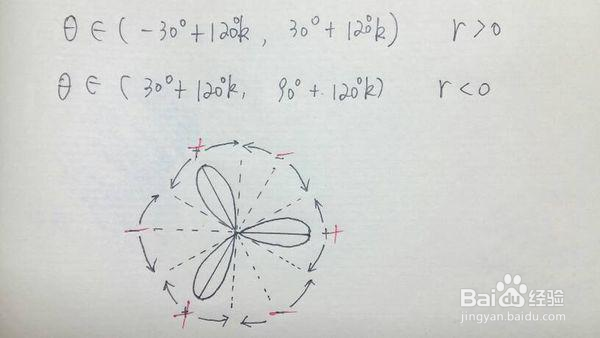 θ ∈ ( -30°+120°k , 30°+120°k ) r>0
θ ∈ ( 30°+120°k, 90°+120°k ) r<0
+ -
- +
+ -
Bai 经验
jingyan.baidu.com